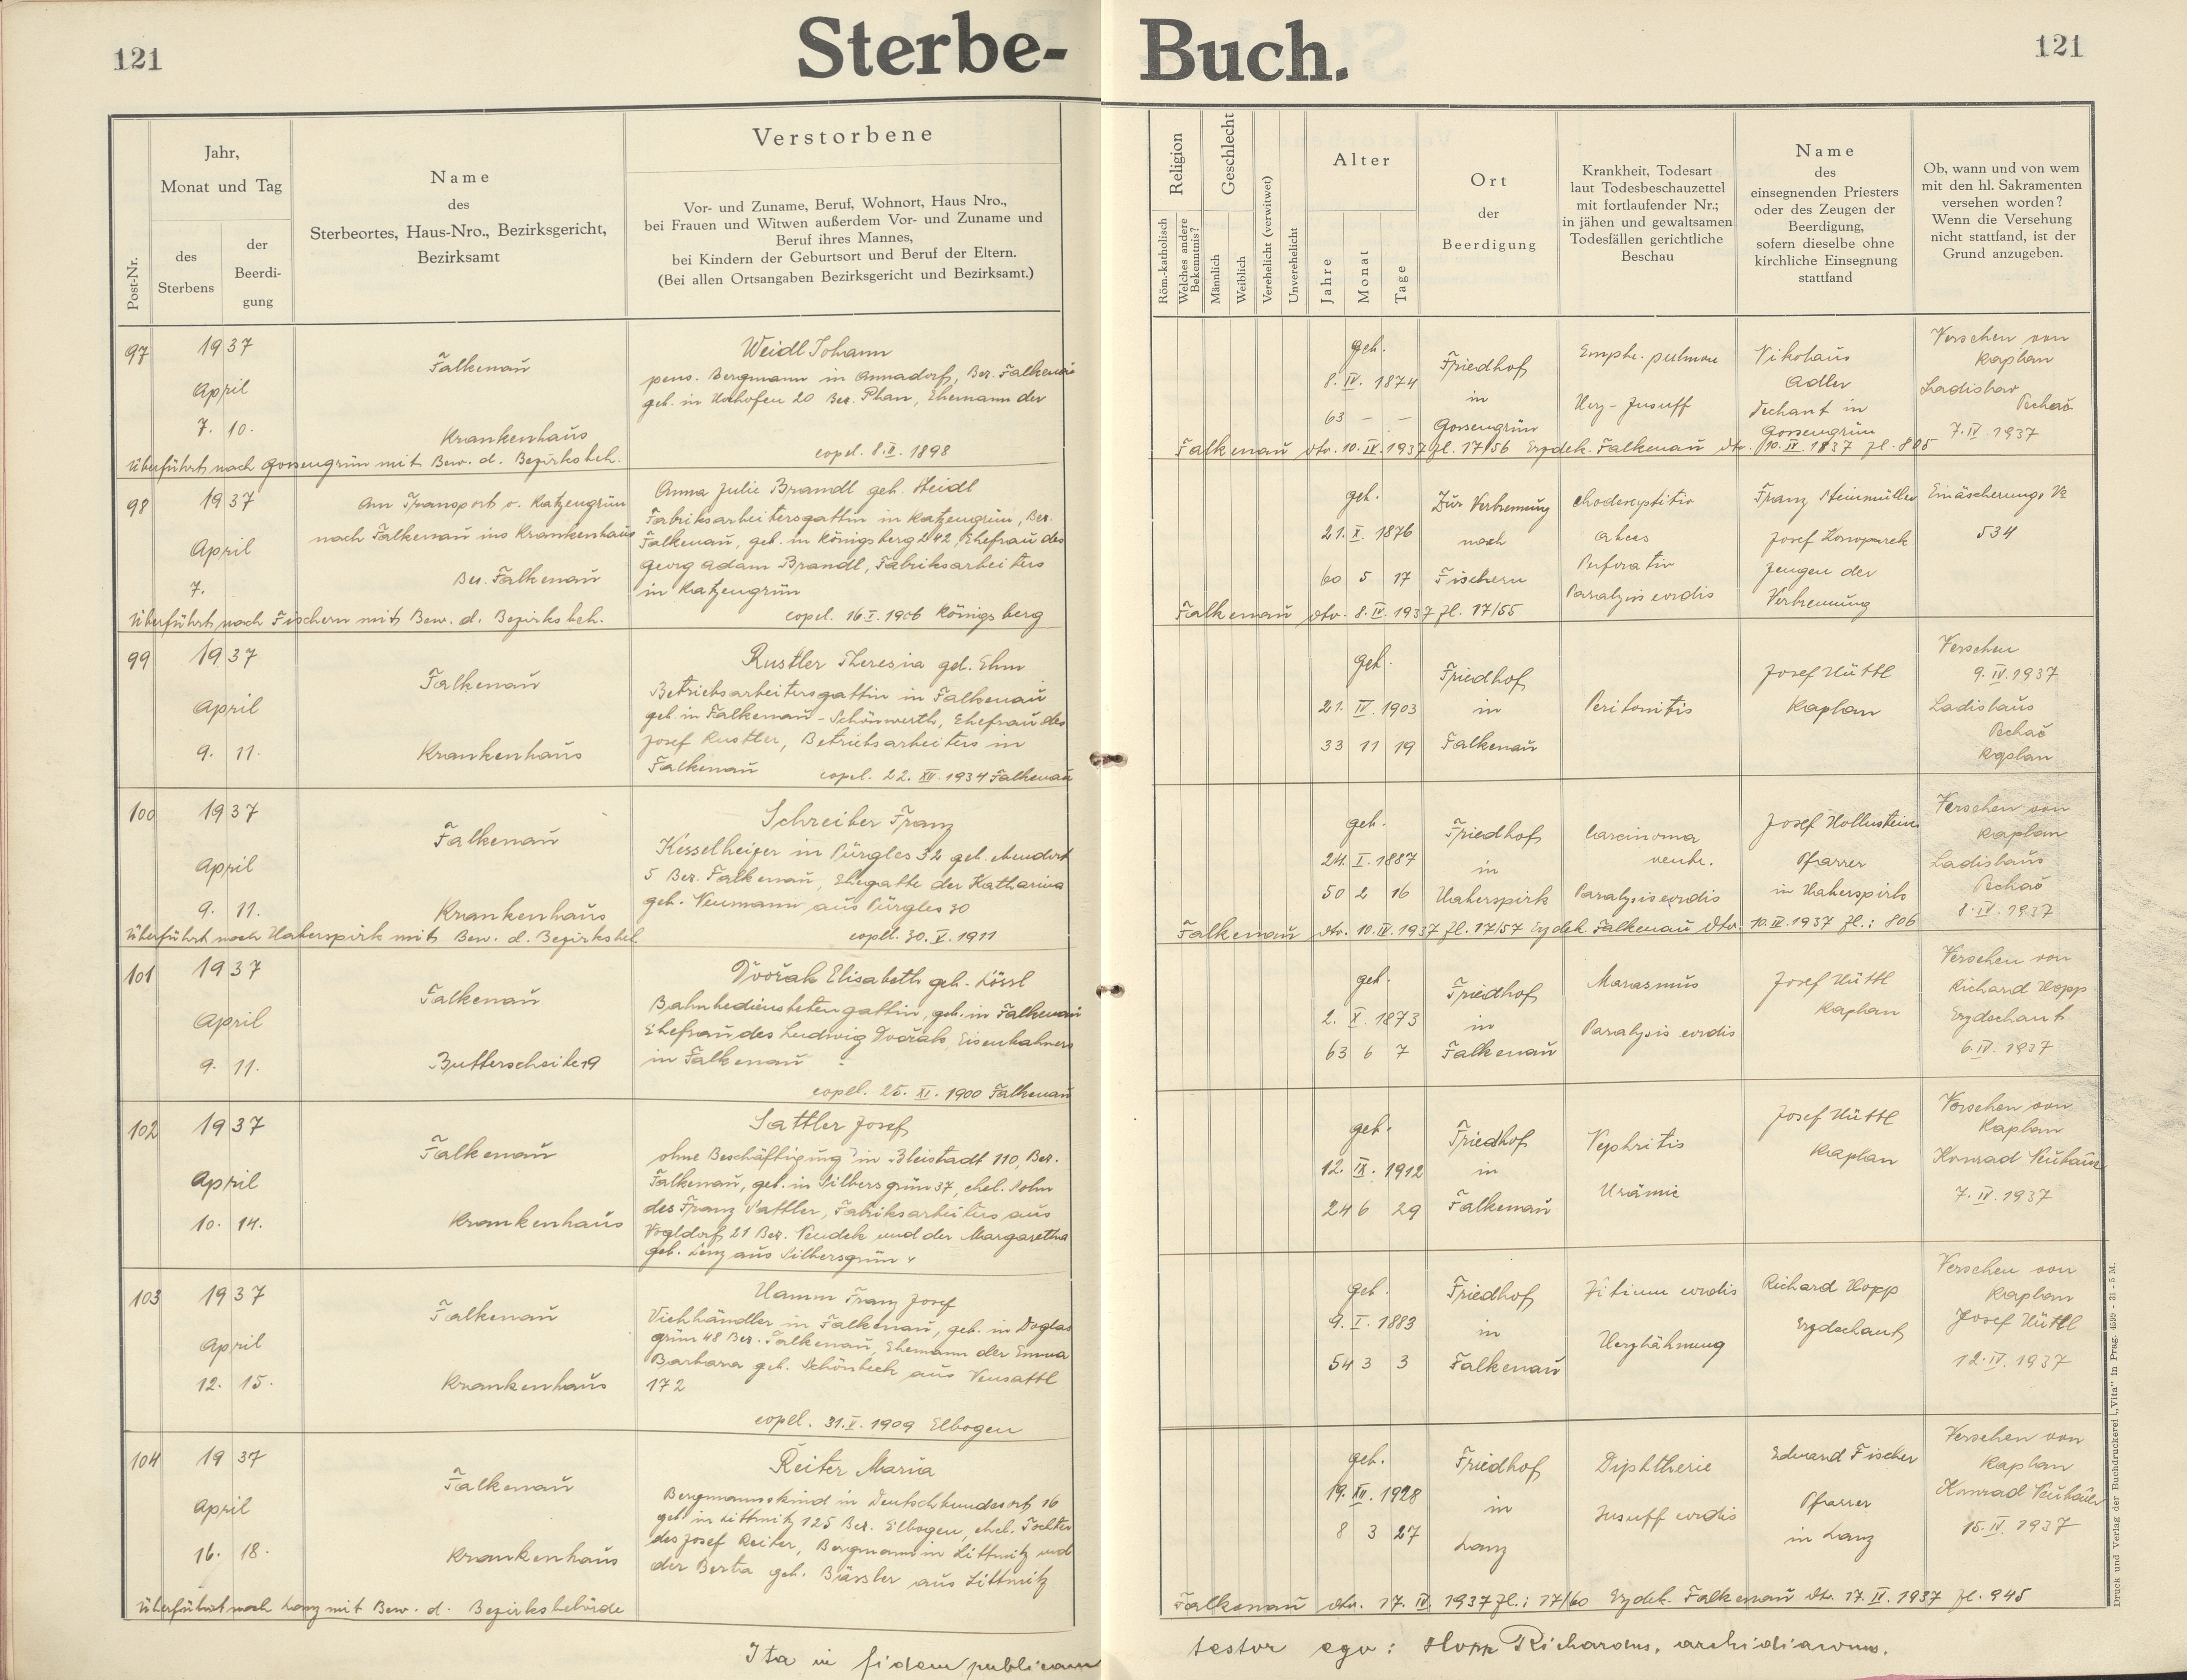 121
Sterbe-
Buch.
121
Post-Nr.
Jahr,
Monat und Tag
des
Sterbens
der
Beerdi-
gung
Name
des
Sterbeortes, Haus-Nro., Bezirksgericht,
Bezirksamt
Verstorbene
Vor- und Zuname, Beruf, Wohnort, Haus Nro.,
bei Frauen und Witwen außerdem Vor- und Zuname und
Beruf ihres Mannes,
bei Kindern der Geburtsort und Beruf der Eltern.
(Bei allen Ortsangaben Bezirksgericht und Bezirksamt.)
Religion
Röm.-katholisch
Welches andere
Bekenntnis?
Geschlecht
Männlich
Weiblich
Verehelicht (verwitwet)
Unverehelicht
Alter
Jahre
Monat
Tage
Ort
der
Beerdigung
Krankheit, Todesart
laut Todesbeschauzettel
mit fortlaufender Nr.;
in jähen und gewaltsamen
Todesfällen gerichtliche
Beschau
Name
des
einsegnenden Priesters
oder des Zeugen der
Beerdigung,
sofern dieselbe ohne
kirchliche Einsegnung
stattfand
Ob, wann und von wem
mit den hl. Sakramenten
versehen worden?
Wenn die Versehung
nicht stattfand, ist der
Grund anzugeben.
97
1937
April
7. 10.
Falkenau
Krankenhaus
Weidl Johann
pens. Bergmann in Annadorf, Bez. Falkenau
geb. in Hochofen 20 Bez. Plan, Ehemann der
copel. 8.II. 1898
geb.
8. IV. 1874
63 - -
Friedhof
in
Gossengrün
Emph. pulmon
Herz-Insuff
Nikolaus
Adler
Dechant in
Gossengrün
Versehen von
Kaplan
Ladislav
Pechač
7.IV.1937
Überführt nach Gossengrün mit Bew. d. Bezirksbeh.
Falkenau dto. 10.IV.1937 Zl. 17/56 Erzdek. Falkenau dto. 10.IV.1937 Zl. 805
98
1937
April
7.
Am Transport v. Katzengrün
nach Falkenau ins Krankenhaus
Bez. Falkenau
Anna Julie Brandl geb. Heidl
Fabriksarbeitersgattin in Katzengrün, Bez.
Falkenau, geb. in Königsberg 242, Ehefrau des
Georg Adam Brandl, Fabriksarbeiters
in Katzengrün
copel. 16.I.1906 Königsberg
geb.
21. X. 1876
60 5 17
Zur Verbrennung
nach
Fischern
abces
Perforatio
Paralysis cordis
Franz Steinmüller
Josef
Zeugen der
Verbrennung
Einäscherungs
534
Überführt nach Fischern mit Bew. d. Bezirksbeh.
Falkenau dto. 8.IV.1937 Zl. 17/55
99
1937
April
9. 11.
Falkenau
Krankenhaus
Rustler Theresia geb. Ehm
Betriebsarbeitersgattin in Falkenau
geb. in Falkenau-Schönwerth, Ehefrau des
Josef Rustler, Betriebsarbeiters in
Falkenau copel. 22. XII. 1934 Falkenau
geb.
21. IV. 1903
33 11 19
Friedhof
in
Falkenau
Peritonitis
Josef Hüttl
Kaplan
Versehen
9.IV.1937
Ladislaus
Pechač
Kaplan
100
1937
April
9. 11.
Falkenau
Krankenhaus
Schreiber Franz
Kesselheizer in Pürgles 32 geb. ebendort
5 Bez. Falkenau, Ehegatte der Katharina
geb. Neumann aus Pürgles 30
copel. 30. V. 1911
geb.
24. I. 1887
50 2 16
Friedhof
in
Haberspirk
Carcinoma
ventr.
Paralysis cordis
Josef Hollnstein
Pfarrer
in Haberspirk
Versehen von
Kaplan
Ladislaus
Pechač
8.IV.1937
Überführt nach Haberspirk mit Bew. d. Bezirksbeh.
Falkenau dto. 10.IV.1937 Zl. 17/57 Erzdek. Falkenau dto. 10.IV.1937 Zl.: 806
101
1937
April
9. 11.
Falkenau
Buttersheile 19
Dvořák Elisabeth geb. Lössl
Bahnbedienstetengattin, geb. in Falkenau
Ehefrau des Ludwig Dvořák, Eisenbahners
in Falkenau
copel. 25. XI. 1900 Falkenau
geb.
2. X. 1873
63 6 7
Friedhof
in
Falkenau
Marasmus
Paralysis cordis
Josef Hüttl
Kaplan
Versehen von
Richard Hopp
Erzdechant
6.IV.1937
102
1937
April
10. 14.
Falkenau
Krankenhaus
Sattler Josef
ohne Beschäftigung in Bleistadt 110, Bez.
Falkenau, geb. in Silbersgrün 37, ehel. Sohn
des Franz Sattler, Fabriksarbeiters aus
Vogldorf 21 Bez. Neudek und der Margaretha
geb. Lenz aus Silbersgrün
geb.
12. IX. 1912
24 6 29
Friedhof
in
Falkenau
Nephritis
Urämie
Josef Hüttl
Kaplan
Versehen von
Kaplan
Konrad Neubauer
7.IV.1937
103
1937
April
12. 15.
Falkenau
Krankenhaus
Hamm Franz Josef
Viehhändler in Falkenau, geb. in Doglas
grün 48 Bez. Falkenau, Ehemann der Emma
Barbara geb. Schönbeck aus Neusattl
172
copel. 31.V.1909 Elbogen
geb.
9. I. 1883
54 3 3
Friedhof
in
Falkenau
Vitium cordis
Herzlähmung
Richard Hopp
Erzdechant
Versehen von
Kaplan
Josef Hüttl
12.IV.1937
104
1937
April
16. 18.
Falkenau
Krankenhaus
Reiter Maria
Bergmannskind in Deutschbundesort 16
geb. in Littmitz 125 Bez. Elbogen, ehel. Tochter
des Josef Reiter, Bergmann in Littmitz und
der Berta geb. Bässler aus Littmitz
geb.
19. XII. 1928
8 3 27
Friedhof
in
Lanz
Diphtherie
Insuff cordis
Eduard Fischer
Pfarrer
in Lanz
Versehen von
Kaplan
Konrad Neubauer
15.IV.1937
Überführt nach Lanz mit Bew. d. Bezirksbehörde
Falkenau dto. 17.IV.1937 Zl.: 17/60 Erzdek. Falkenau dto. 17.IV.1937 Zl. 945
Ita in fidem publicam
testor ego: Hopp Richardus, archidiaconus.
Druck und Verlag der Buchdruckerei „Vita" in Prag. 4599 - 31 - 5 M.